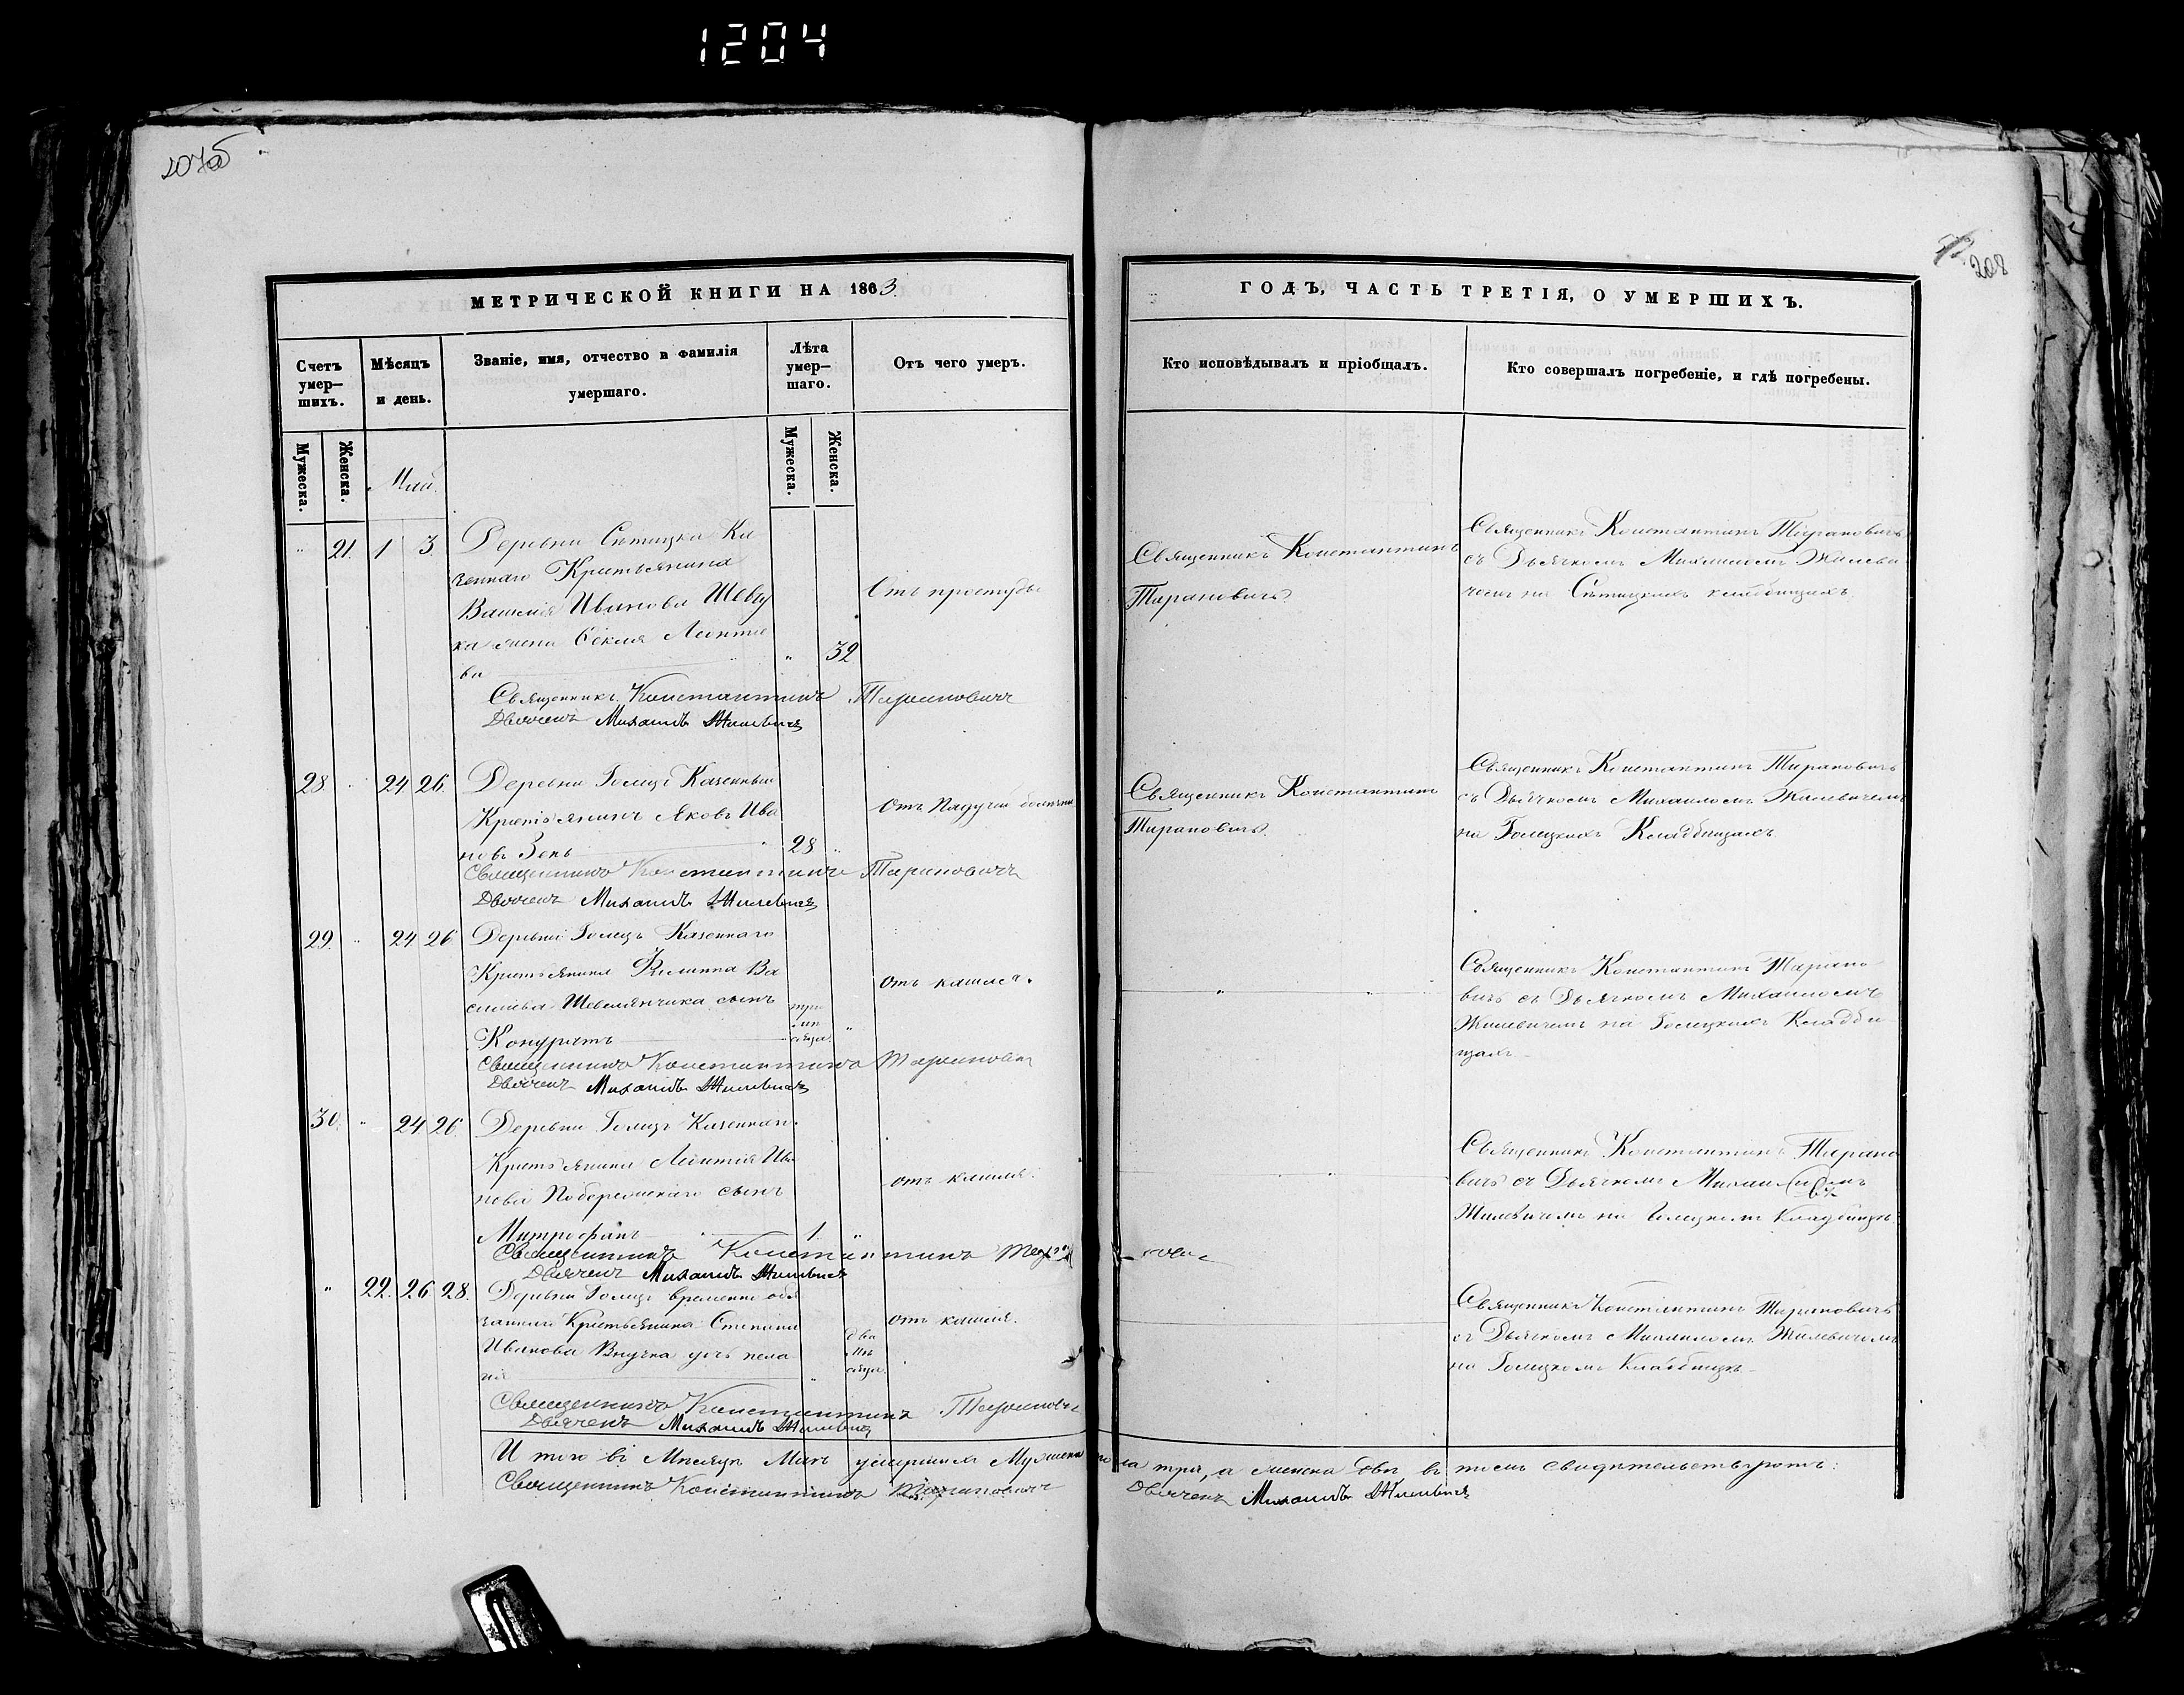 1204
207об
208
МЕТРИЧЕСКОЙ КНИГИ НА 1863
Счетъ умер-шихъ.
Мѣсяцъ и день.
Званіе, имя, отчество и фамилія умершаго.
Лѣта умер-шаго.
Отъ чего умеръ.
Мужеска.
Женска.
Май.
Мужеска.
Женска.
" 21. 1 3. Деревни Сѣтицка Ка
зеннаго Крестьянина
Василія Иванова Шевчу
ка жена Ѳекла Леонтье
ва " 32
Отъ простуды
Священникъ Константинъ Тарановичъ
Дьячекъ Михаилъ Жилевичъ
28 " 24 26. Деревни Голицъ Казенный
Крестьянинъ Яковъ Ива
новъ Зень 28 "
Отъ Падучей болезни
Священникъ Константинъ Тарановичъ
Дьячекъ Михаилъ Жилевичъ
29. " 24 26 Деревни Голицъ Казеннаго
Крестьянина Филиппа Ва
сильева Шевелянчика сынъ
Кондратъ
три мѣсяца "
отъ кашля.
Священникъ Константинъ Тарановичъ
Дьячекъ Михаилъ Жилевичъ
30. " 24 26. Деревни Голицъ Казеннаго
Крестьянина Леонтія Ива
нова Побережскаго сынъ
Митрофанъ 1. "
отъ кашля.
Священникъ Константинъ Тарановичъ
Дьячекъ Михаилъ Жилевичъ
" 22. 26 28. Деревни Голицъ временно обя
заннаго Крестьянина Степана
Иванова Внучка дочь Пела
гія
два мѣсяца.
отъ кашля.
Священникъ Константинъ Тарановичъ
Дьячекъ Михаилъ Жилевичъ
ГОДЪ, ЧАСТЬ ТРЕТІЯ, О УМЕРШИХЪ.
Кто исповѣдывалъ и пріобщалъ.
Кто совершалъ погребеніе, и гдѣ погребены.
Священникъ Константинъ
Тарановичъ
Священникъ Константинъ Тарановичъ
съ Дьячкомъ Михаиломъ Жилеви
чемъ на Сѣтицкихъ кладбищахъ
Священникъ Константинъ
Тарановичъ.
Священникъ Константинъ Тарановичъ
съ Дьячкомъ Михаиломъ Жилевичемъ
на Голицкихъ Кладбищахъ.
Священникъ Константинъ Тарано
вичъ съ Дьячкомъ Михаиломъ
Жилевичемъ на Голицкихъ Кладби
щахъ
Священникъ Константинъ Тарано
вичъ съ Дьячкомъ Михаиломъ
Жилевичемъ на Голицкомъ Кладбищѣ.
Священникъ Константинъ Тарановичъ
съ Дьячкомъ Михаиломъ Жилевичемъ
на Голицкомъ Кладбищѣ.
И того въ Мѣсяцѣ Маѣ умершихъ Мужеска пола три, а женска двѣ, въ чемъ свидѣтельствуютъ:
Священникъ Константинъ Тарановичъ Дьячекъ Михаилъ Жилевичъ